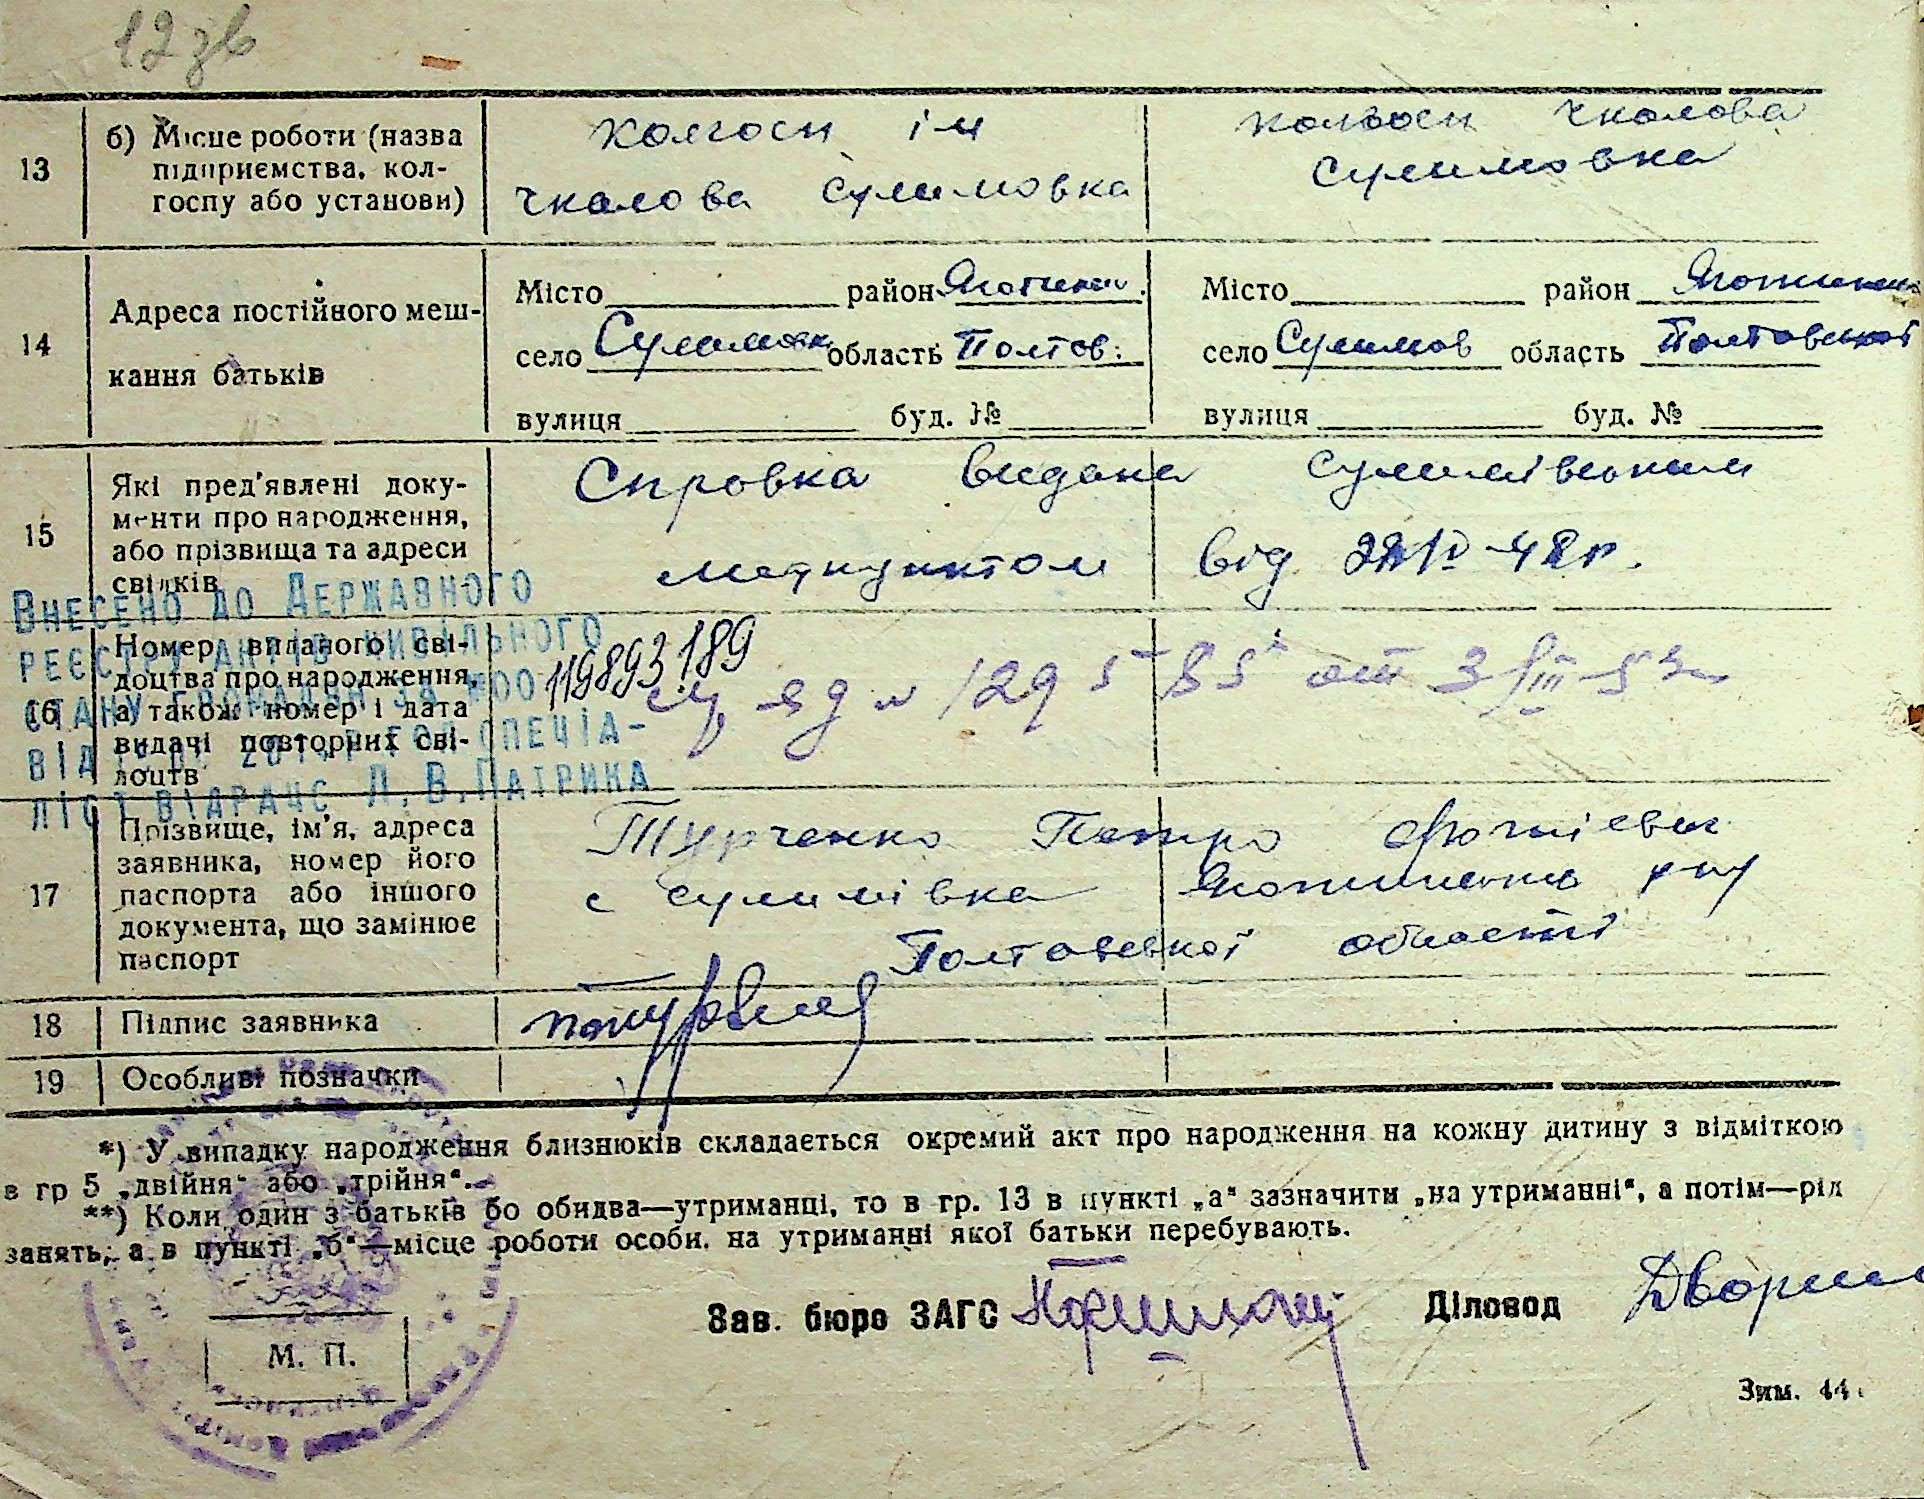 12 зв
13 б) Місце роботи (назва підприємства, колгоспу або установи)
колгосп ім
чкалова Сулимовка
колгосп чкалова
Сулимовка
14 Адреса постійного мешкання батьків
Місто район Яготинськ.
село Сулимовк область Полтов:
вулиця буд. №
Місто район
село Сулимов область Полтовської
вулиця буд. №
15 Які пред'явлені документи про народження, або прізвища та адреси свідків
Справка видана Сулимівським
медпунктом від 48 р.
16 Номер виданого свідоцтва про народження, а також номер і дата видачі повторних свідоцтв
119893189
от 3/III-53
Внесено до Державного
реєстру актів цивільного
стану громадян за №00
від
ліст відрацс Л. В. Патрика
17 Прізвище, ім'я, адреса заявника, номер його паспорта або іншого документа, що замінює паспорт
Турченко Петро
с Сулимівка р-ну
Полтовської області
18 Підпис заявника
19 Особливі позначки
*) У випадку народження близнюків складається окремий акт про народження на кожну дитину з відміткою
в гр 5 „двійня" або „трійня".
**) Коли один з батьків бо обидва—утриманці, то в гр. 13 в пункті „а" зазначити „на утриманні", а потім—рід
занять, а в пункті „б"—місце роботи особи, на утриманні якої батьки перебувають.
Зав. бюро ЗАГС Діловод
М. П.
Зим. 44